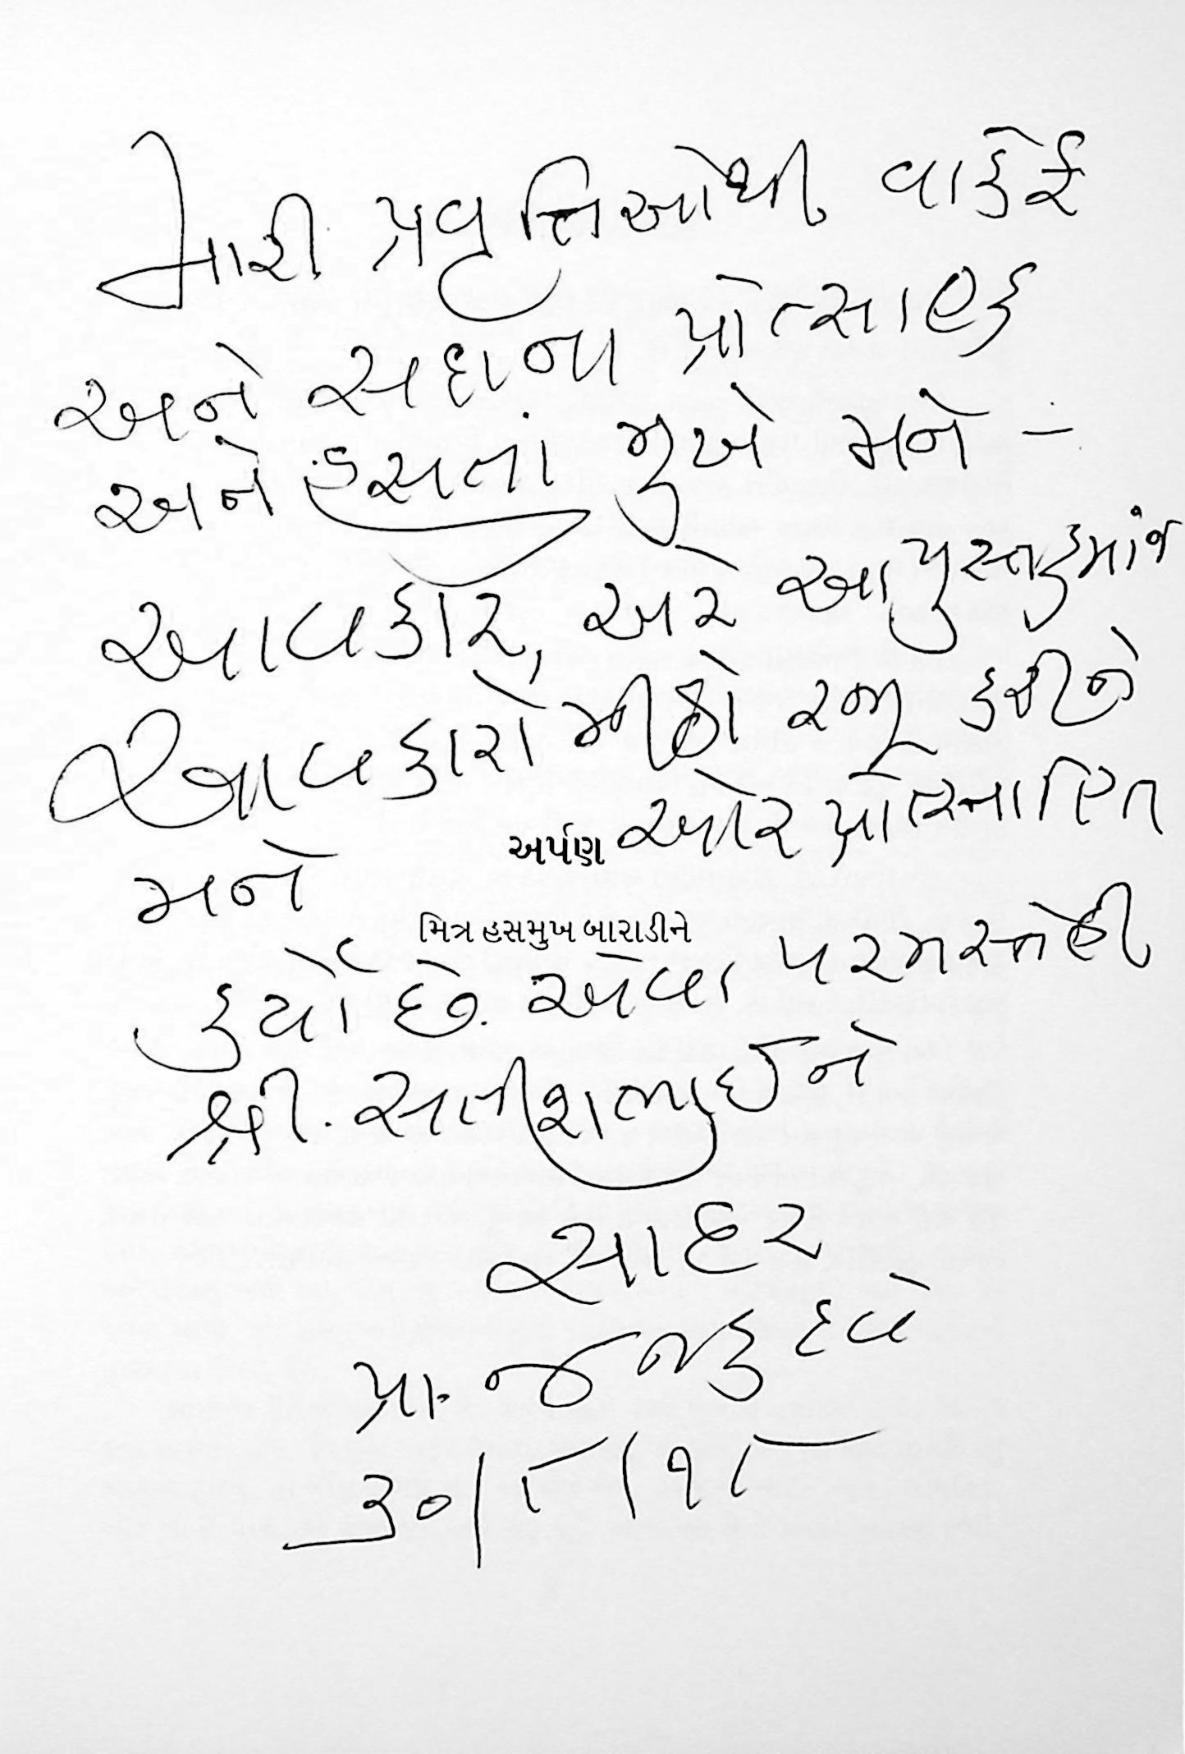 મારી પ્રવૃત્તિઓથી વાકેફ
અને સદાના પ્રોત્સાહક
અને હસતાં મુખે મને –
આવકાર, અરે આ પુસ્તકમાંજ
આવકારો મીઠો રજૂ કરીને
મને ઓર પ્રોત્સાહિત
અર્પણ
મિત્ર હસમુખ બારાડીને
કર્યો છે. એવા પરમસ્નેહી
શ્રી. સતીશભાઈને
સાદર
પ્રા. જનક દવે
૩૦/૮/૧૮